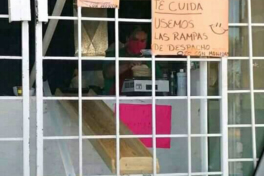 TE CUIDA
USEMOS
LAS RAMPAS
DE DESPACHO